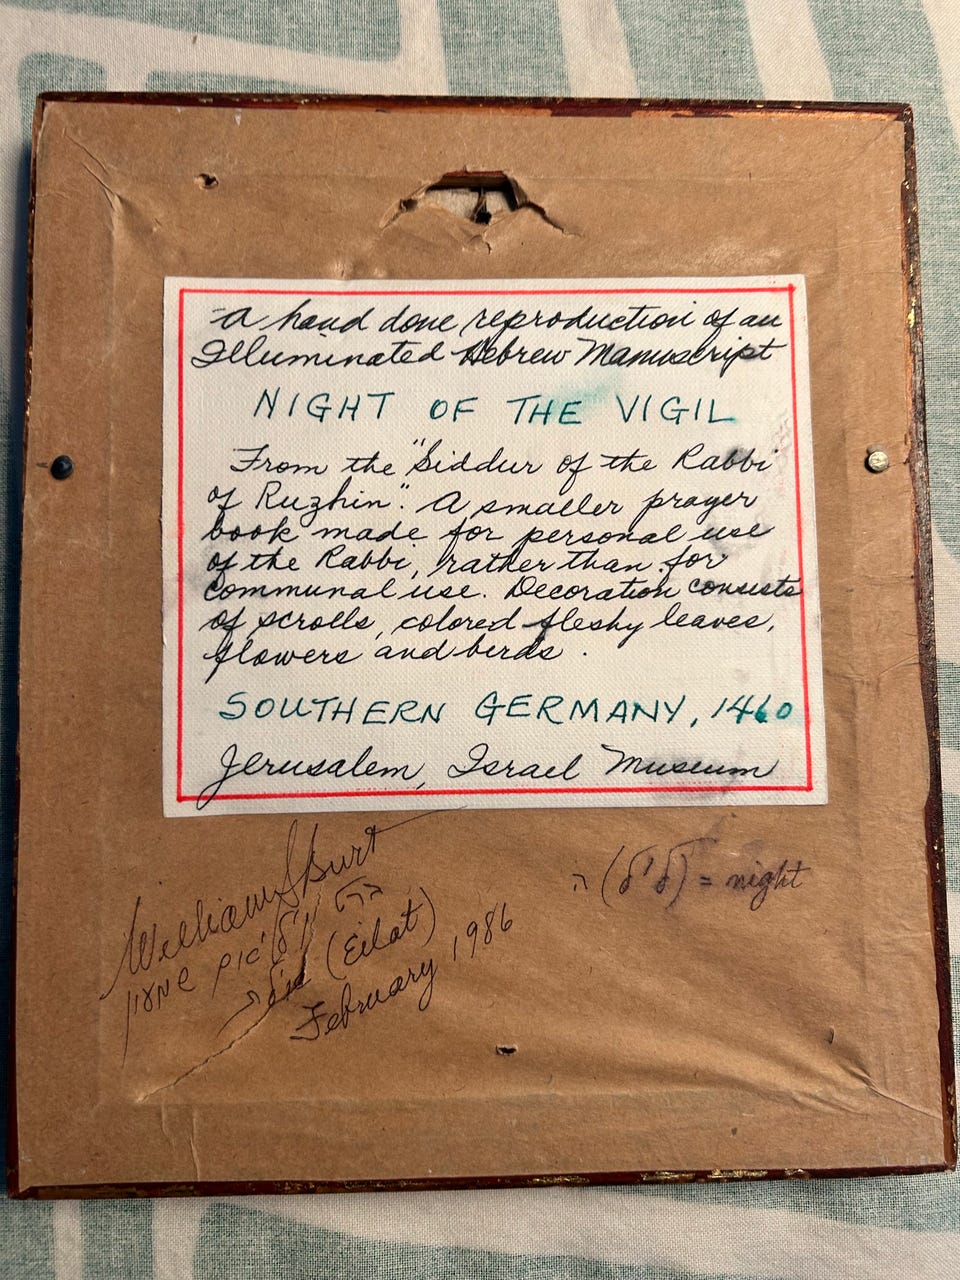 A hand done reproduction of an
Illuminated Hebrew Manuscript
NIGHT OF THE VIGIL
From the "Siddur of the Rabbi
of Ruzhin". A smaller prayer
book made for personal use
of the Rabbi, rather than for
communal use. Decoration consists
of scrolls, colored fleshy leaves,
flowers and birds.
SOUTHERN GERMANY, 1460
Jerusalem, Israel Museum
William S Burt
(Eilat)
February 1986
ה (לילה) = night